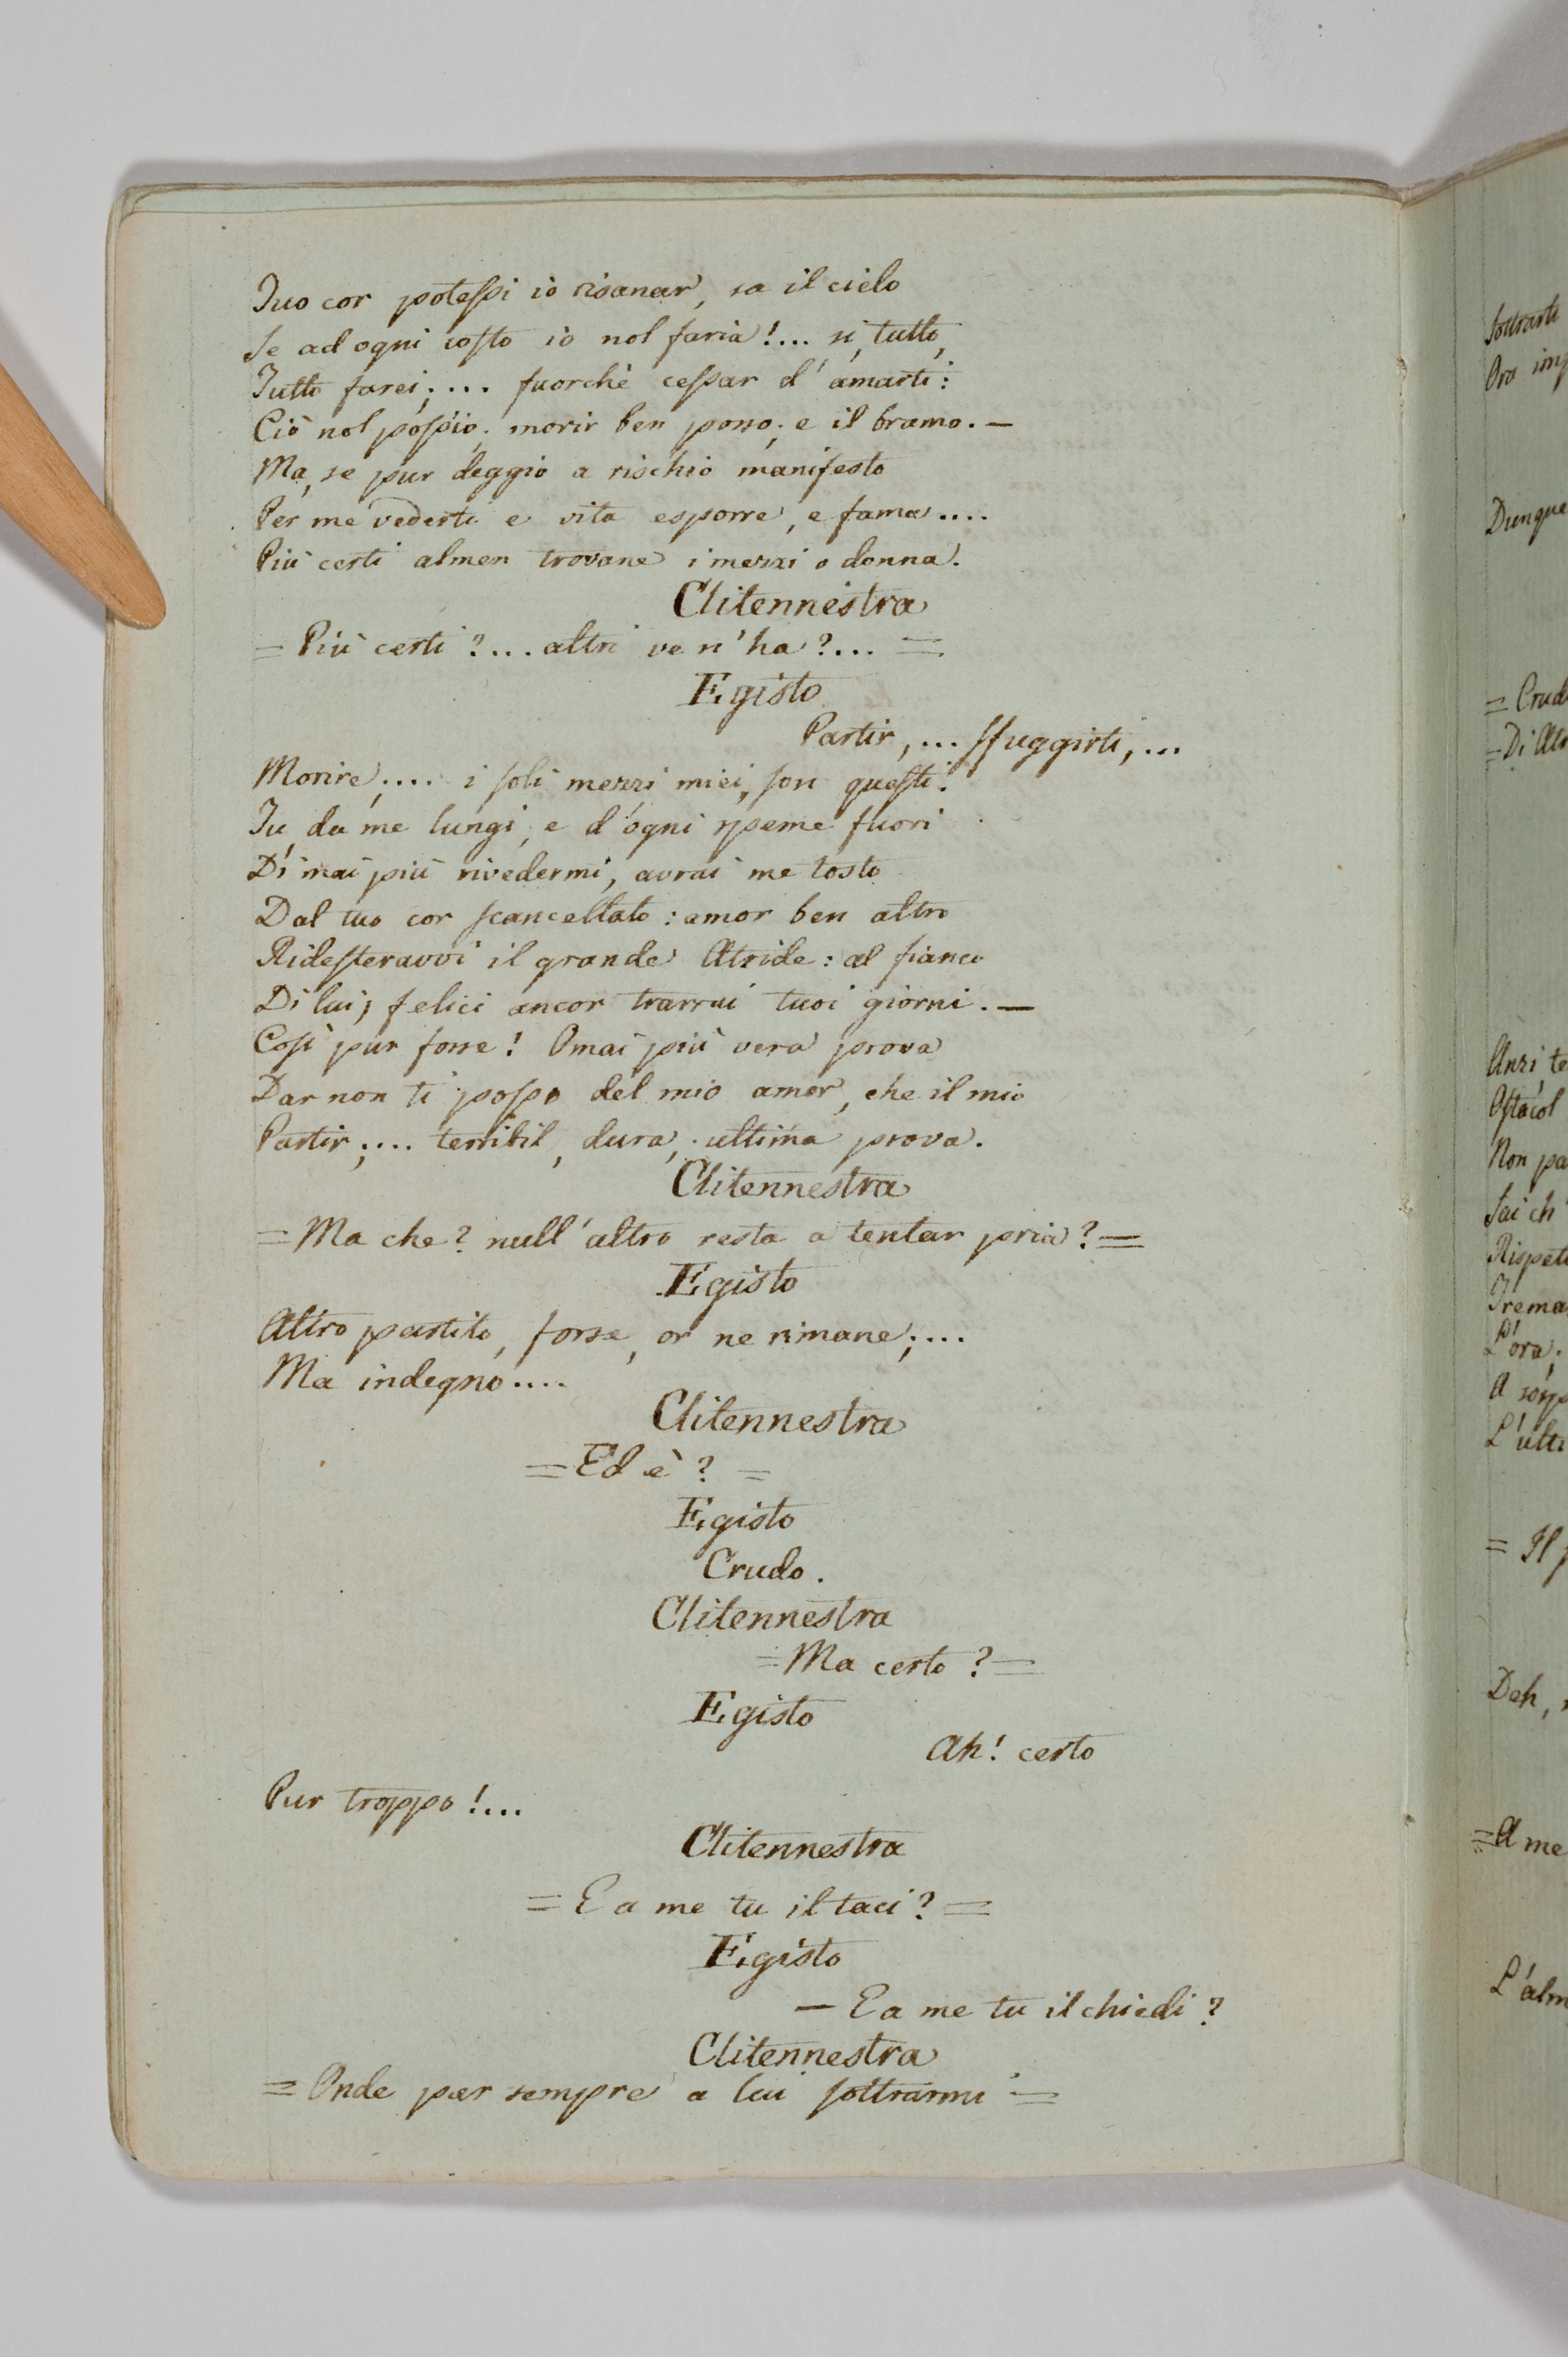 Tuo cor potessi io risanar, sa il cielo
Se ad ogni costo io nol faria!... si, tutto,
Tutto farei;... fuorchè cessar d'amarti:
Ciò nol poss'io; morir ben posso; e il bramo. —
Ma, se pur deggio a rischio manifesto
Per me vederti e vita esporre, e fama....
Più certi almen trovane i mezzi o donna.
Clitennestra
= Più certi?... altri ve n'ha?... =
Egisto
Partir,... sfuggirti,...
Morire;.... i soli mezzi miei, son questi.
Tu, da me lungi, e d'ogni speme fuori
Di mai più rivedermi, avrai me tosto
Dal tuo cor scancellato: amor ben altro
Ridesteravvi il grande Atride: al fianco
Di lui, felici ancor trarrai tuoi giorni. —
Così pur fosse! Omai più vera prova
Dar non ti posso del mio amor, che il mio
Partir;.... terribil, dura, ultima prova.
Clitennestra
= Ma che? null'altro resta a tentar pria? =
Egisto
Altro partito, forse, or ne rimane;....
Ma indegno....
Clitennestra
= Ed è? =
Egisto
Crudo.
Clitennestra
= Ma certo? =
Egisto
Ah! certo
Pur troppo!...
Clitennestra
= E a me tu il taci? =
Egisto
— E a me tu il chiedi?
Clitennestra
= Onde per sempre a lui sottrarmi =
Sottrarti
Ora
Dunque
=
= Di
Anzi
Ostacol
Non
Sai ch'
L'ora;
A
= Il
Deh,
= A me